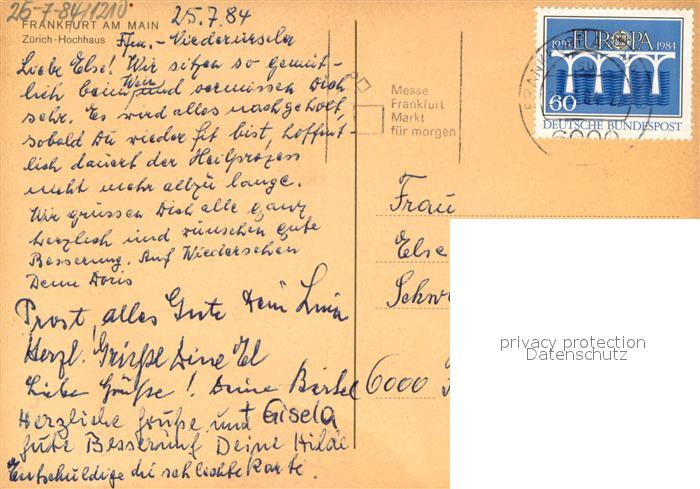 25-7-84/1210
FRANKFURT AM MAIN
Zürich-Hochhaus
25.7.84
Ffm.-Niederursel
Liebe Else! Wir sitzen so gemüt-
lich beim Wein und vermissen Dich
sehr. Es wird alles nachgeholt,
sobald Du wieder fit bist, hoffent-
lich dauert der Heilprozess
nicht mehr allzu lange.
Wir grüssen Dich alle ganz
herzlich und wünschen gute
Besserung. Auf Wiedersehen
Deine Doris
Prost, alles Gute Dein
Herzl. Grüße Deine
Liebe Grüße! Deine Bärbel
Herzliche Grüße und + Gisela
gute Besserung Deine Hilde
Entschuldige die schlechte Karte.
Messe
Frankfurt
Markt
für morgen
FRANK
6000
EUROPA
1984
60
DEUTSCHE BUNDESPOST
Frau
Else
6000
privacy protection
Datenschutz